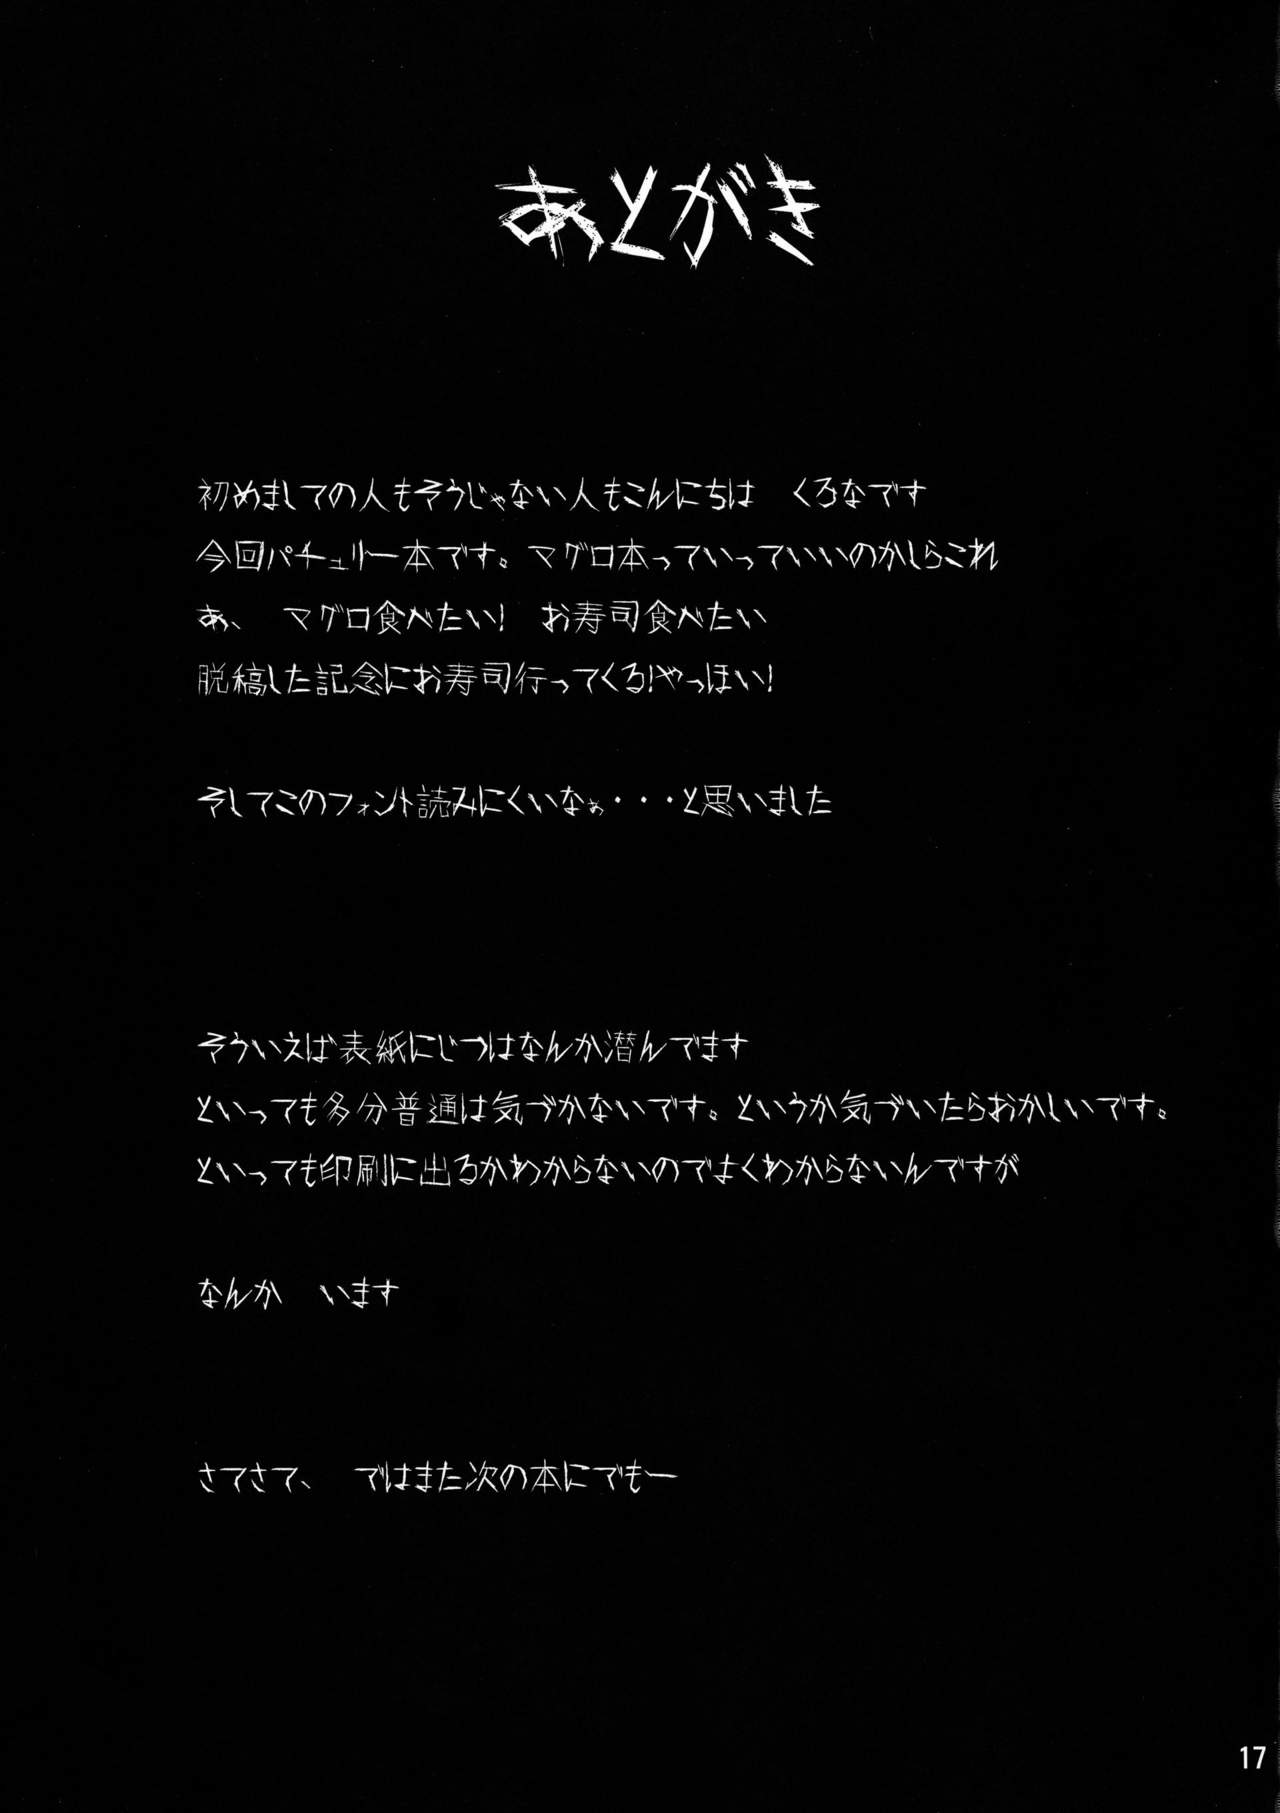 あとがき
初めましての人もそうじゃない人もこんにちは　くろなです
今回パチュリー本です。マグロ本っていっていいのかしらこれ
あ、　マグロ食べたい!　お寿司食べたい
脱稿した記念にお寿司行ってくる!やっほい!
そしてこのフォント読みにくいなぁ・・・と思いました
そういえば表紙にじつはなんか潜んでます
といっても多分普通は気づかないです。というか気づいたらおかしいです。
といっても印刷に出るかわからないのでよくわからないんですが
なんか　います
さてさて、　ではまた次の本にでもー
17